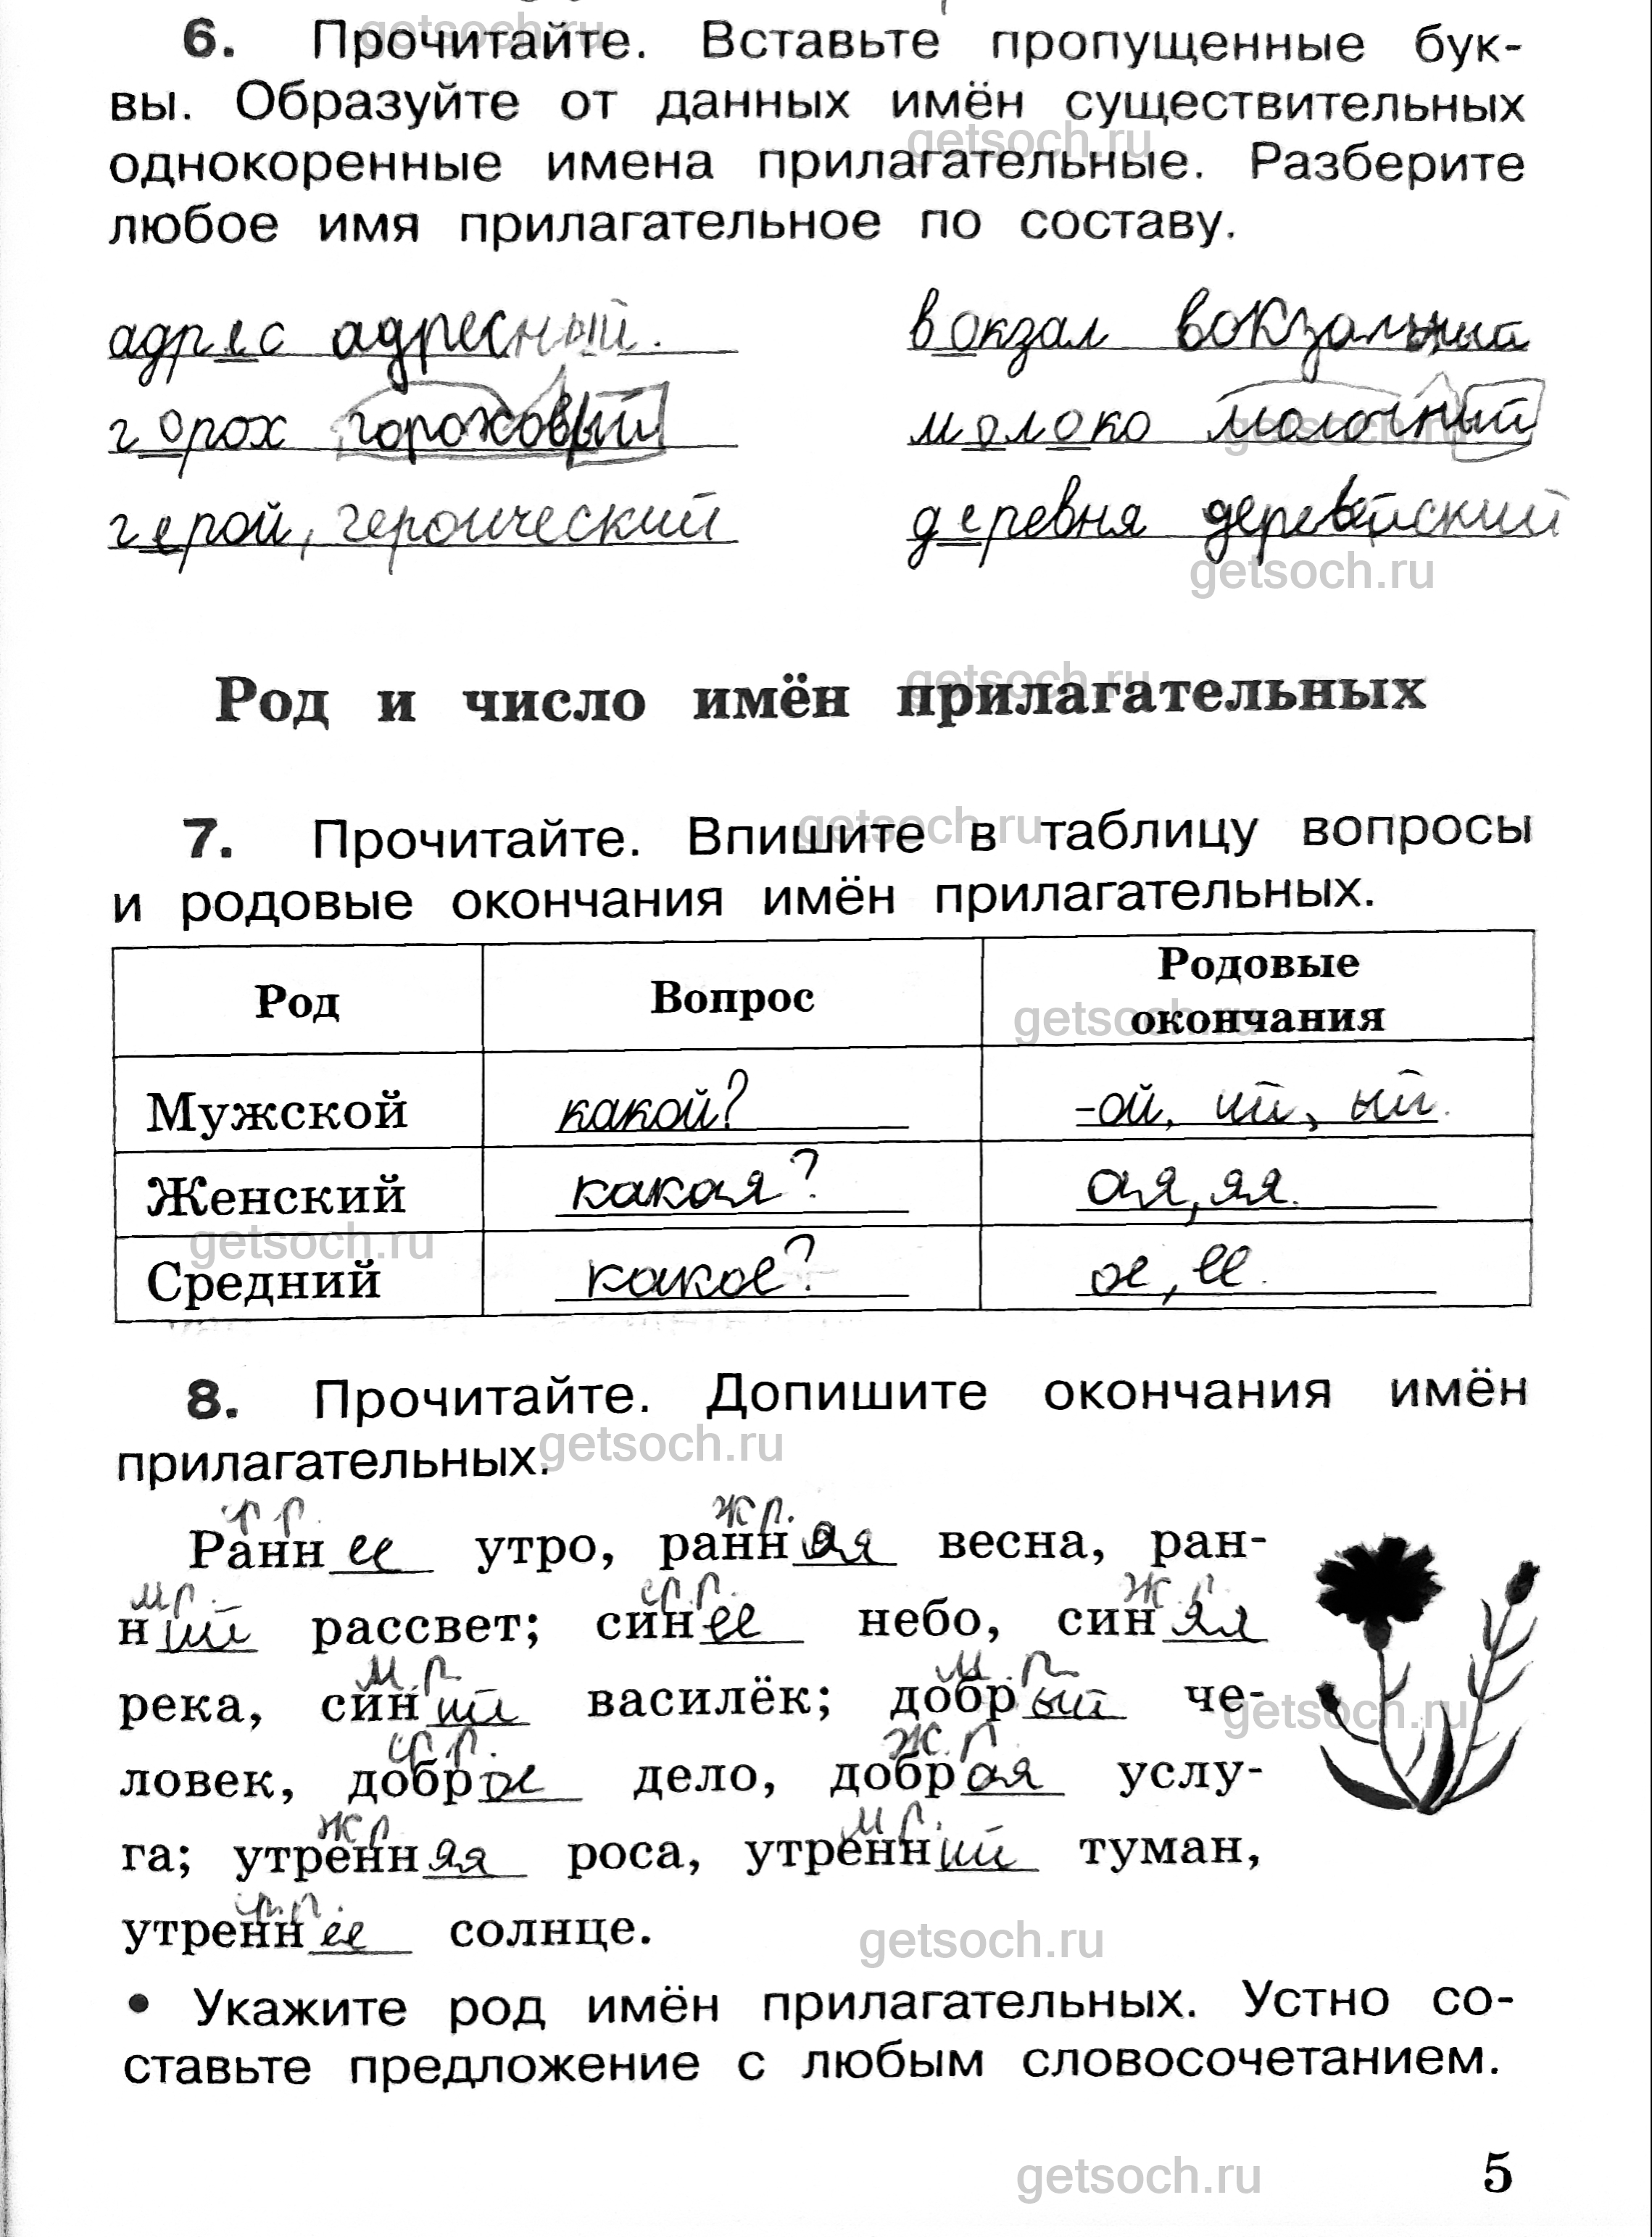 6. Прочитайте. Вставьте пропущенные бук-
вы. Образуйте от данных имён существительных
однокоренные имена прилагательные. Разберите
любое имя прилагательное по составу.
адрес адресный. вокзал вокзальный
горох гороховый молоко молочный
герой, героический деревня деревейский
getsoch.ru
getsoch.ru
getsoch.ru
getsoch.ru
Род и число имён прилагательных
getsoch.ru
7. Прочитайте. Впишите в таблицу вопросы
и родовые окончания имён прилагательных.
getsoch.ru
Род Вопрос Родовые
окончания
getsoch.ru
Мужской какой? -ой, ий, ый.
Женский какая? ая, яя.
Средний какое? ое, ее.
getsoch.ru
8. Прочитайте. Допишите окончания имён
прилагательных.
getsoch.ru
ср.р. ж.р.
Раннее утро, ранняя весна, ран-
м.р. ср.р. ж.р.
ний рассвет; синее небо, синяя
м.р. м.р.
река, синий василёк; добрый че-
getsoch.ru
ср.р. ж.р.
ловек, доброе дело, добрая услу-
ж.р. м.р.
га; утренняя роса, утренний туман,
ср.р.
утреннее солнце.
getsoch.ru
• Укажите род имён прилагательных. Устно со-
ставьте предложение с любым словосочетанием.
getsoch.ru
5